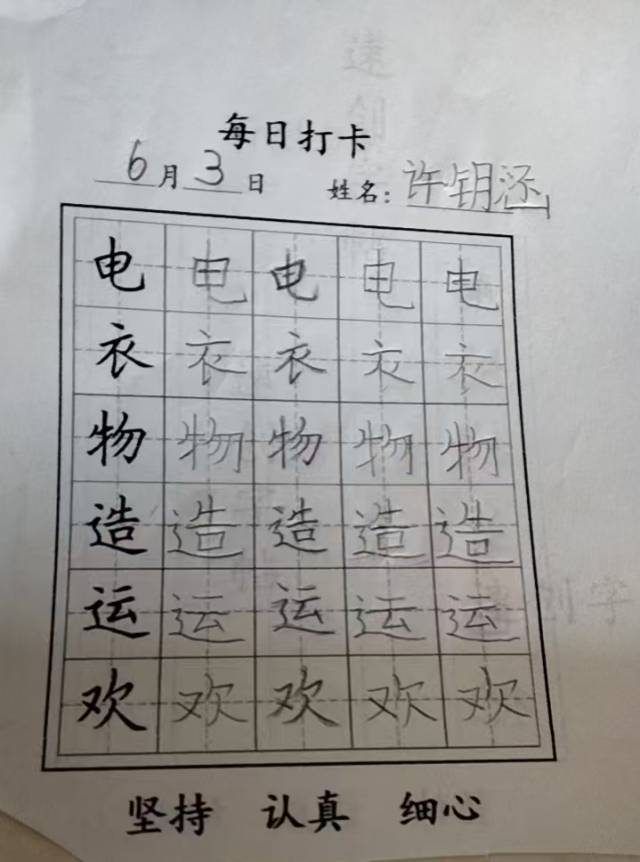 每日打卡
6月3日 姓名:许钥还
电电电电电
衣衣衣衣衣
物物物物物
造造造造造
运运运运运
欢欢欢欢欢
坚持 认真 细心